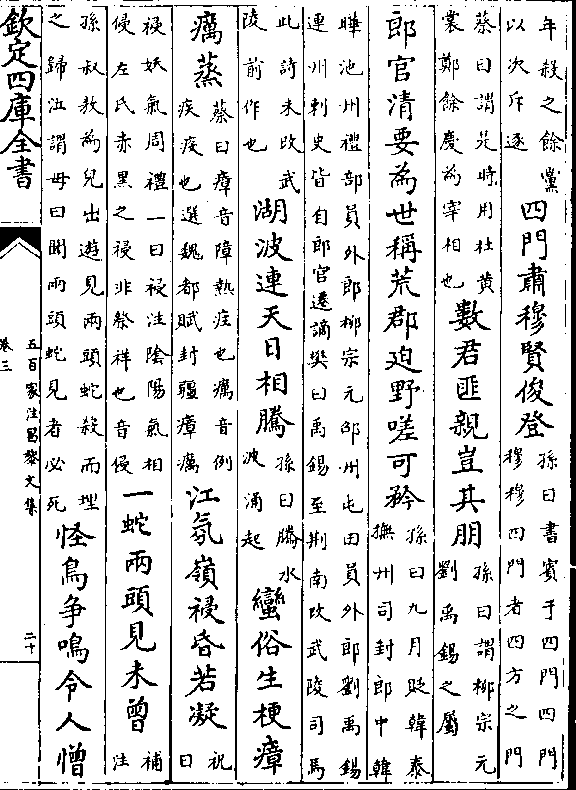 年殺之餘黨
以次斥逐
四門肅穆賢俊登
孫曰書賓于四門四門
穆穆四門者四方之門
蔡曰謂是時用杜黄
裳鄭餘慶為宰相也
數君匪親豈其朋
孫曰謂柳宗元
劉禹錫之屬
郎官清要為世稱荒郡迫野嗟可矜
孫曰九月貶韓泰
撫州司封郎中韓
曄池州禮部員外郎柳宗元邵州屯田員外郎劉禹錫
連州刺史皆自郎官遷謫樊曰禹錫至荆南改武陵司馬
此詩未改武
陵前作也
湖波連天日相騰
孫曰騰水
波涌起
蠻俗生梗瘴
癘蒸
蔡曰瘴音障熱症也癘音例
疾疫也選魏都賦封疆瘴癘
江氛嶺祲昏若凝
祝
曰
祲妖氣周禮一曰祲注隂陽氣相
侵左氏赤黑之祲非祭祥也音侵
一蛇兩頭見未曾
補
注
孫叔敖為兒出遊見兩頭蛇殺而埋
之歸泣謂母曰聞兩頭蛇見者必死
怪鳥争鳴令人憎
欽定四庫全書
五百家注昌黎文集
卷三
二十